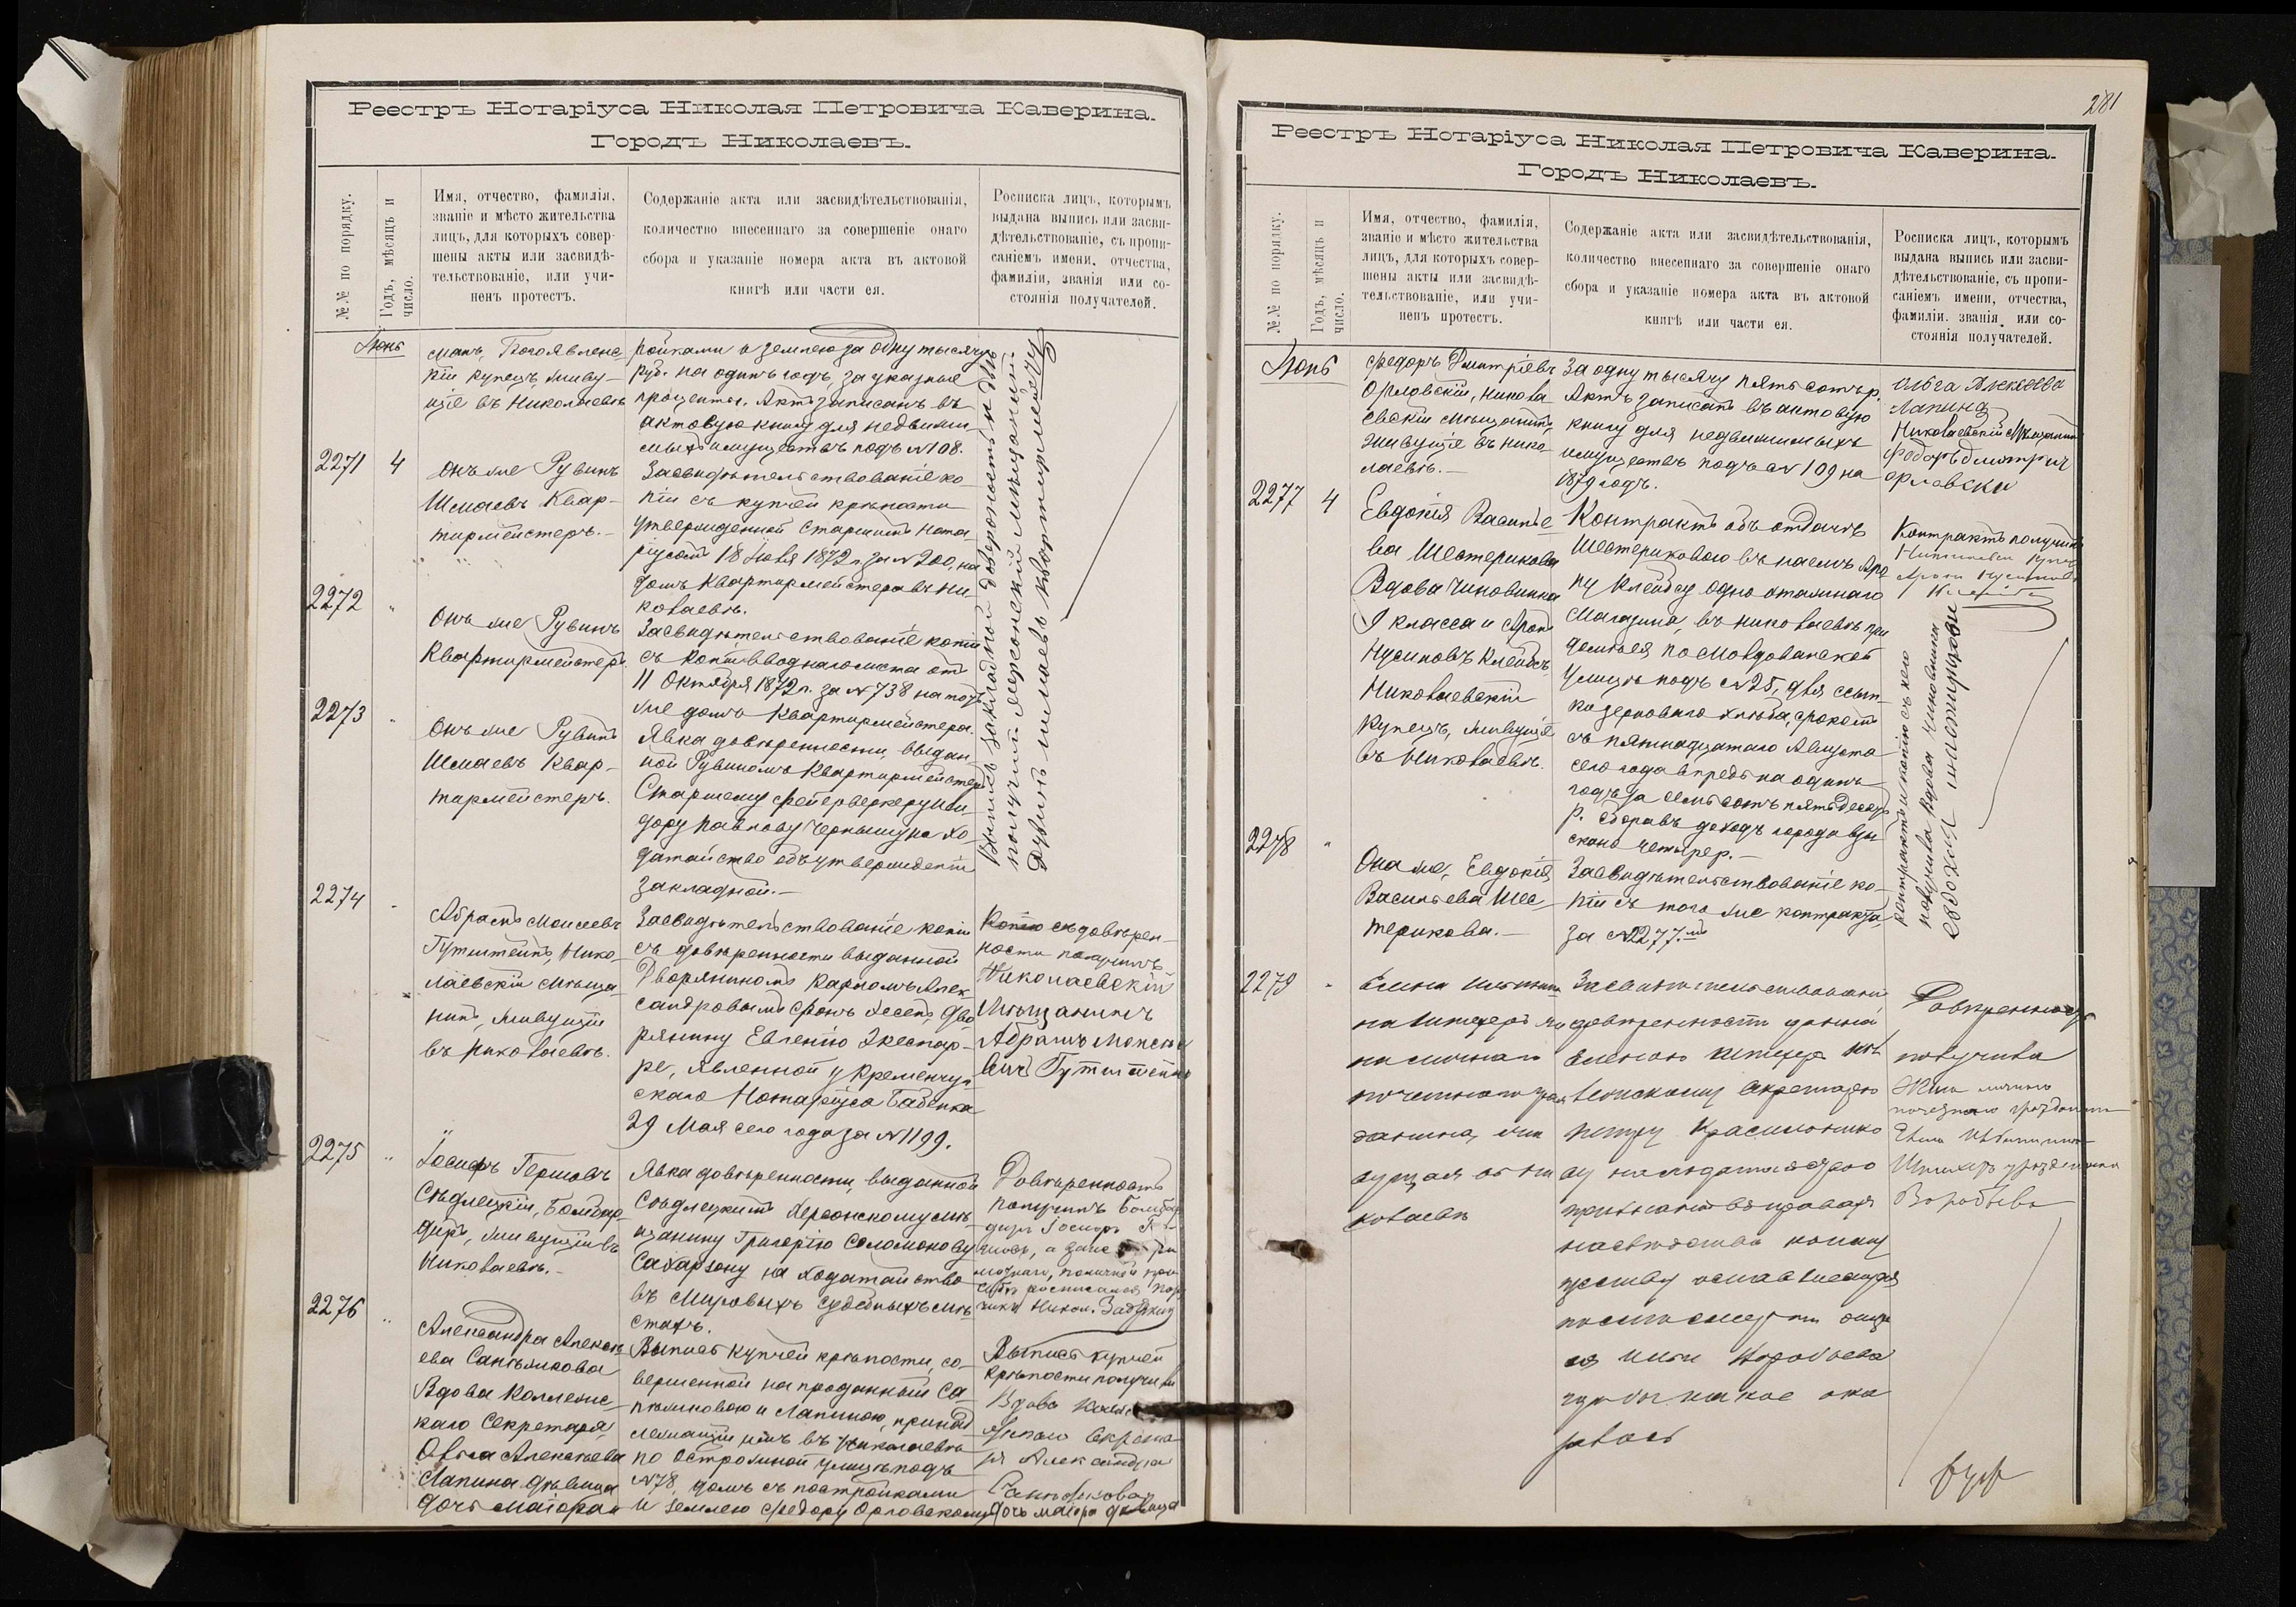 Реестръ Нотаріуса Николая Петровича Каверина.
Городъ Николаевъ.
№№ по порядку.
Годъ, мѣсяцъ и
число.
Имя, отчество, фамилія,
званіе и мѣсто жительства
лицъ, для которыхъ совер-
шены акты или засвидѣ-
тельствованіе, или учи-
ненъ протестъ.
Содержаніе акта или засвидѣтельствованія,
количество внесеннаго за совершеніе онаго
сбора и указаніе номера акта въ актовой
книгѣ или части ея.
Росписка лицъ, которымъ
выдана выпись или засви-
дѣтельствованіе, съ пропи-
саніемъ имени, отчества,
фамиліи, званія или со-
стоянія получателей.
Іюнь
манъ, Богоявленс-
кій купецъ, живу-
щіе въ Николаевѣ
ройками и землею за одну тысячу
руб. на одинъ годъ, за указные
проценты. Актъ записанъ въ
актовую книгу для недвижи-
мыхъ имуществъ подъ №108.
2271 4
Онъ же Рувинъ
Шмаевъ Квар-
тирмейстеръ.
Засвидѣтельствованіе ко-
піи съ купчей крѣпости
утвержденной Старшимъ Нота-
ріусомъ 18 Іюля 1872 г. за №200, на
домъ Квартирмейстера въ Ни-
колаевѣ.
2272 "
Онъ же Рувинъ
Квартирмейстеръ.
Засвидѣтельствованіе копіи
съ копіи вводнаго листа отъ
11 Октября 1872 г. за №738 на тотъ
же домъ Квартирмейстера.
2273 "
Онъ же Рувинъ
Шмаевъ Квар-
тирмейстеръ.
Явка довѣренности, выдан-
ной Рувиномъ Квартирмейстеръ
Старшему фейерверкеру
Павлову Чернышу на хо-
датайство объ утвержденіи
закладной.
Выпись закладной довѣренность и
получилъ Херсонскій мѣщанинъ
Рувинъ Шмаевъ Квартирмейстеръ
2274 "
Абрамъ Моисеевъ
Гутштейнъ, Нико-
лаевскій мѣща-
нинъ, живущій
въ Николаевѣ.
Засвидѣтельствованіе копіи
съ довѣренности выданной
Дворяниномъ Карломъ Алек-
сандровымъ фонъ Дво-
рянину Евгенію
ре, явленной у Кременчуг-
скаго Нотаріуса Бабенка
29 Мая сего года за №1199.
Копію съ довѣрен-
ности получилъ
Николаевскій
Мѣщанинъ
Абрамъ Моисее
вичъ Гутштейнъ
2275 "
Іосифъ Гершовъ
Сѣдлецкій, Бомбар-
диръ, живущій въ
Николаевѣ.
Явка довѣренности, выданной
Сѣдлецкимъ Херсонскому мѣ-
щанину Григорію Соломонову
Сахарзону на ходатайство
въ Мировыхъ судебныхъ мѣ-
стахъ.
Довѣренность
получилъ Бомбар
диръ Іосифъ
2276 "
Александра Алексѣ-
ева Санѣликова
Вдова Коллежс-
каго Секретаря,
Ольга Алексѣева
Лапина дѣвица
дочь маіора и
Выпись купчей крѣпости, со-
вершенной на проданный Са-
нѣликовою и Лапиною, принад-
лежащій имъ въ Николаевѣ
по Остромной улицѣ подъ
№78, домъ съ постройками
и землею Федору Орловскому
Выпись купчей
крѣпости получили
Вдова
Секрета
ря Александра
дочь маіора дѣвица
281
Реестръ Нотаріуса Николая Петровича Каверина.
Городъ Николаевъ.
№№ по порядку.
Годъ, мѣсяцъ и
число.
Имя, отчество, фамилія,
званіе и мѣсто жительства
лицъ, для которыхъ совер-
шены акты или засвидѣ-
тельствованіе, или учи-
ненъ протестъ.
Содержаніе акта или засвидѣтельствованія,
количество внесеннаго за совершеніе онаго
сбора и указаніе номера акта въ актовой
книгѣ или части ея.
Росписка лицъ, которымъ
выдана выпись или засви-
дѣтельствованіе, съ пропи-
саніемъ имени, отчества,
фамиліи, званія или со-
стоянія получателей.
Іюнь
Федоръ Дмитріевъ
Орловскій, Никола-
евскій мѣщанинъ,
живущіе въ Нико-
лаевѣ.
За одну тысячу пятьсотъ р.
Актъ записанъ въ актовую
книгу для недвижимыхъ
имуществъ подъ №109 на
1879 годъ.
Ольга Алексѣева
Лапина
Николаевскій Мѣщанинъ
Федоръ Дмитрич
орловски
2277 4
Евдокія Василье-
ва Шестерикова
Вдова Чиновника
9 класса и Аронъ
Нусиновъ Клейбсъ,
Николаевскій
купецъ, живущіе
въ Николаевѣ.
Контрактъ объ отдачѣ
Шестериковою въ наемъ Аро-
ну Клейбсу одно этажнаго
Магазина, въ Николаевѣ при
домѣ ея по Молдованской
улицѣ подъ №25, для ссып-
ки зерноваго хлѣба, срокомъ
съ пятнадцатаго Августа
сего года впредь на одинъ
годъ за семьсотъ пятьдесятъ
р. сборавъ доходъ города взы-
скано четыре р.
Контрактъ получилъ
контрактъ и копію съ него
получила Вдова Чиновника
евдокия шестирикови
2278 "
Она же, Евдокія
Васильева Шес-
терикова.
Засвидѣтельствованіе ко-
піи съ того же контракта,
за №2277.
2279 "
Елена
личнаго
почетнаго граж
данина, жи
вущая въ Ни
колаевѣ
Засвидѣтельствованіе
довѣренности данной
Еленою
Секретарю
Петру Красильнико
ву
наслѣдства
оставшемуся
послѣ смерти отца
ея Воробьева
гдѣ бы какое ока
залось
Довѣренность
получила
Жена личнаго
почетнаго гражданина
Елена
урожденная
Воробьева